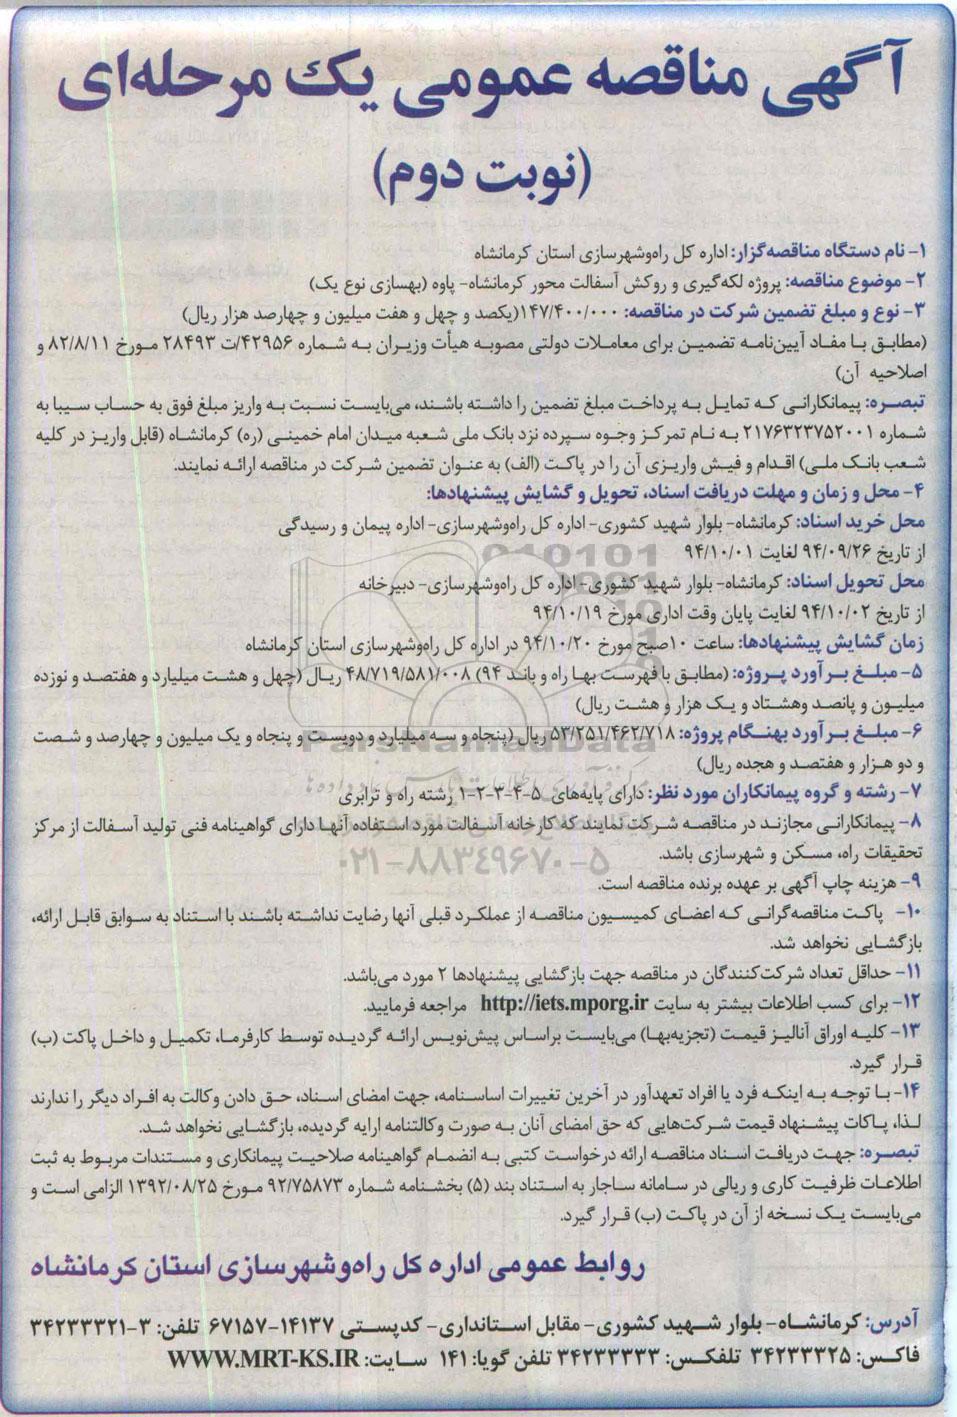 آگهی مناقصه عمومی یک مرحله‌ای
(نوبت دوم)
۱- نام دستگاه مناقصه‌گزار: اداره کل راه‌وشهرسازی استان کرمانشاه
۲- موضوع مناقصه: پروژه لکه‌گیری و روکش آسفالت محور کرمانشاه- پاوه (بهسازی نوع یک)
۳- نوع و مبلغ تضمین شرکت در مناقصه: ۱۴۷/۴۰۰/۰۰۰(یکصد و چهل و هفت میلیون و چهارصد هزار ریال)
(مطابق با مفاد آیین‌نامه تضمین برای معاملات دولتی مصوبه هیأت وزیران به شماره ۴۲۹۵۶/ت ۲۸۴۹۳ مورخ ۸۲/۸/۱۱ و
اصلاحیه آن)
تبصره: پیمانکارانی که تمایل به پرداخت مبلغ تضمین را داشته باشند، می‌بایست نسبت به واریز مبلغ فوق به حساب سیبا به
شماره ۲۱۷۶۳۲۳۷۵۲۰۰۱ به نام تمرکز وجوه سپرده نزد بانک ملی شعبه میدان امام خمینی (ره) کرمانشاه (قابل واریز در کلیه
شعب بانک ملی) اقدام و فیش واریزی آن را در پاکت (الف) به عنوان تضمین شرکت در مناقصه ارائه نمایند.
۴- محل و زمان و مهلت دریافت اسناد، تحویل و گشایش پیشنهادها:
محل خرید اسناد: کرمانشاه- بلوار شهید کشوری- اداره کل راه‌وشهرسازی- اداره پیمان و رسیدگی
از تاریخ ۹۴/۰۹/۲۶ لغایت ۹۴/۱۰/۰۱
محل تحویل اسناد: کرمانشاه- بلوار شهید کشوری- اداره کل راه‌وشهرسازی- دبیرخانه
از تاریخ ۹۴/۱۰/۰۲ لغایت پایان وقت اداری مورخ ۹۴/۱۰/۱۹
زمان گشایش پیشنهادها: ساعت ۱۰صبح مورخ ۹۴/۱۰/۲۰ در اداره کل راه‌وشهرسازی استان کرمانشاه
۵- مبلغ برآورد پروژه: (مطابق با فهرست بها راه و باند ۹۴) ۴۸/۷۱۹/۵۸۱/۰۰۸ ریال (چهل و هشت میلیارد و هفتصد و نوزده
میلیون و پانصد وهشتاد و یک هزار و هشت ریال)
۶- مبلغ برآورد بهنگام پروژه: ۵۳/۲۵۱/۴۶۲/۷۱۸ ریال (پنجاه و سه میلیارد و دویست و پنجاه و یک میلیون و چهارصد و شصت
و دو هزار و هفتصد و هجده ریال)
۷- رشته و گروه پیمانکاران مورد نظر: دارای پایه‌های ۵-۴-۳-۲-۱ رشته راه و ترابری
۸- پیمانکارانی مجازند در مناقصه شرکت نمایند که کارخانه آسفالت مورد استفاده آنها دارای گواهینامه فنی تولید آسفالت از مرکز
تحقیقات راه، مسکن و شهرسازی باشد.
۹- هزینه چاپ آگهی بر عهده برنده مناقصه است.
۱۰- پاکت مناقصه‌گرانی که اعضای کمیسیون مناقصه از عملکرد قبلی آنها رضایت نداشته باشند با استناد به سوابق قابل ارائه،
بازگشایی نخواهد شد.
۱۱- حداقل تعداد شرکت‌کنندگان در مناقصه جهت بازگشایی پیشنهادها ۲ مورد می‌باشد.
۱۲- برای کسب اطلاعات بیشتر به سایت http://iets.mporg.ir مراجعه فرمایید.
۱۳- کلیه اوراق آنالیز قیمت (تجزیه‌بها) می‌بایست براساس پیش‌نویس ارائه گردیده توسط کارفرما، تکمیل و داخل پاکت (ب)
قرار گیرد.
۱۴- با توجه به اینکه فرد یا افراد تعهدآور در آخرین تغییرات اساسنامه، جهت امضای اسناد، حق دادن وکالت به افراد دیگر را ندارند
لذا، پاکات پیشنهاد قیمت شرکت‌هایی که حق امضای آنان به صورت وکالتنامه ارایه گردیده، بازگشایی نخواهد شد.
تبصره: جهت دریافت اسناد مناقصه ارائه درخواست کتبی به انضمام گواهینامه صلاحیت پیمانکاری و مستندات مربوط به ثبت
اطلاعات ظرفیت کاری و ریالی در سامانه ساجار به استناد بند (۵) بخشنامه شماره ۹۲/۷۵۸۷۳ مورخ ۱۳۹۲/۰۸/۲۵ الزامی است و
می‌بایست یک نسخه از آن در پاکت (ب) قرار گیرد.
روابط عمومی اداره کل راه‌وشهرسازی استان کرمانشاه
آدرس: کرمانشاه- بلوار شهید کشوری- مقابل استانداری- کدپستی ۱۴۱۳۷-۶۷۱۵۷ تلفن: ۳-۳۴۲۳۳۳۲۱
فاکس: ۳۴۲۳۳۳۲۵ تلفکس: ۳۴۲۳۳۳۳۳ تلفن گویا: ۱۴۱ سایت: WWW.MRT-KS.IR
ParsNamadData
۰۲۱-۸۸۳۴۹۶۷۰-۵